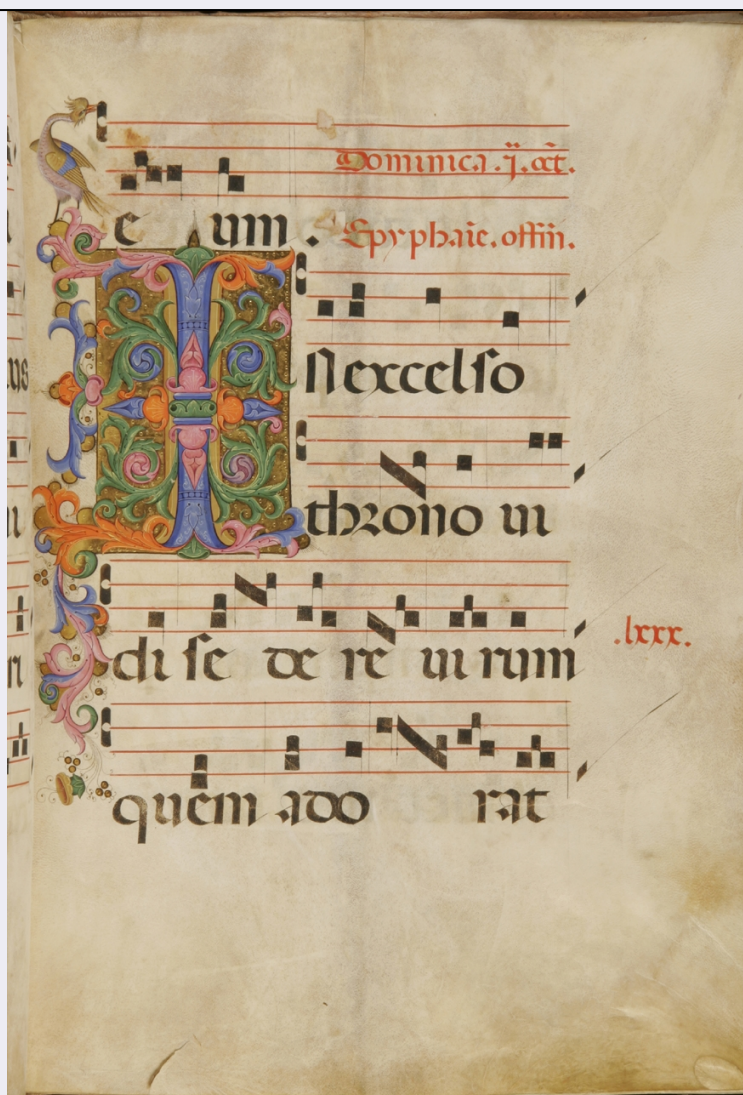 Dominica .j. oct̄.
e um . Epyphaīe. offin̄.
In excelso
throno ui
di se de re ui rum
.lxxx.
quem ado rat